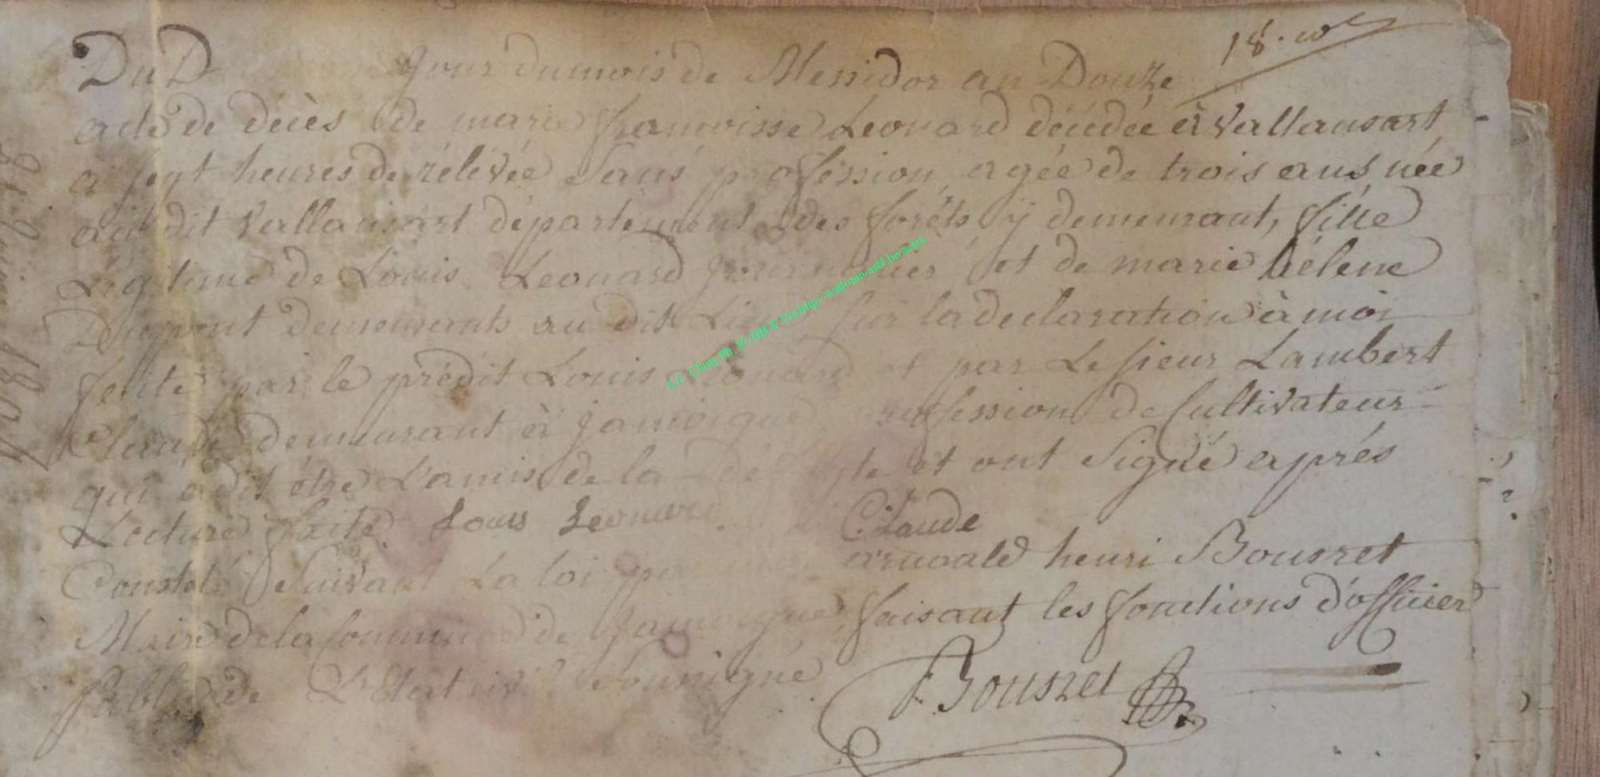 18.
Du D jour du mois de Messidor an Douze
acte de décès de marie francoisse Leonard décédée à Vallansart
a sept heures de rélévée Sans profession, agée de trois ans née
au dit Vallansart département des forêts ÿ demeurant, fille
Légitime de Louis Leonard et de marie hélene
demeurants au dit Lieu Sur la declaration à moi
faite par le prédit Louis Leonard et par Le sieur Lambert
Claude demeurant à Jamoigne profession de Cultivateur
qui a dit être L'amis de la et ont Signé aprés
Lecture faite Louis Leonard Claude
Constaté Suivant La loi par henri Bousret
Maire de la Commune de Jamoigne faisant les fonctions d'officier
public de L'Etat civil Soussigné
Bousret